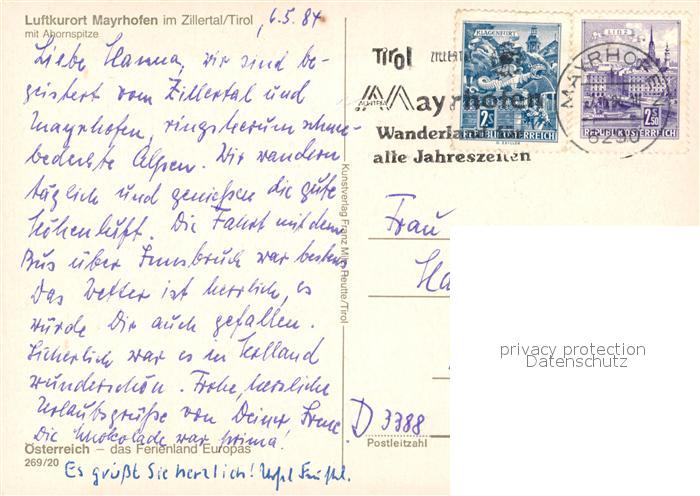 Luftkurort Mayrhofen im Zillertal/Tirol
mit Ahornspitze
6.5.84
Liebe Hanna, wir sind be-
geistert vom Zillertal und
Mayrhofen, ringsherum schnee-
bedeckte Alpen. Wir wandern
täglich und genießen die gute
Höhenluft. Die Fahrt mit dem
Bus über Innsbruck war bestens.
Das Wetter ist herrlich, es
würde Dir auch gefallen.
Sicherlich war es in Holland
wunderschön. Frohe, herzliche
Urlaubsgrüße von Deiner
Die Schokolade war prima!
Österreich – das Ferienland Europas
269/20
Es grüßt Sie herzlich!
Kunstverlag Franz Milz Reutte/Tirol
Tirol ZILLERTAL
Mayrhofen
Wanderland
alle Jahreszeiten
KLAGENFURT
2S
REPUBLIK ÖSTERREICH
LINZ
2.50
REPUBLIK ÖSTERREICH
MAYRHOFEN
6290
Frau
Ha
D 3388
Postleitzahl
privacy protection
Datenschutz